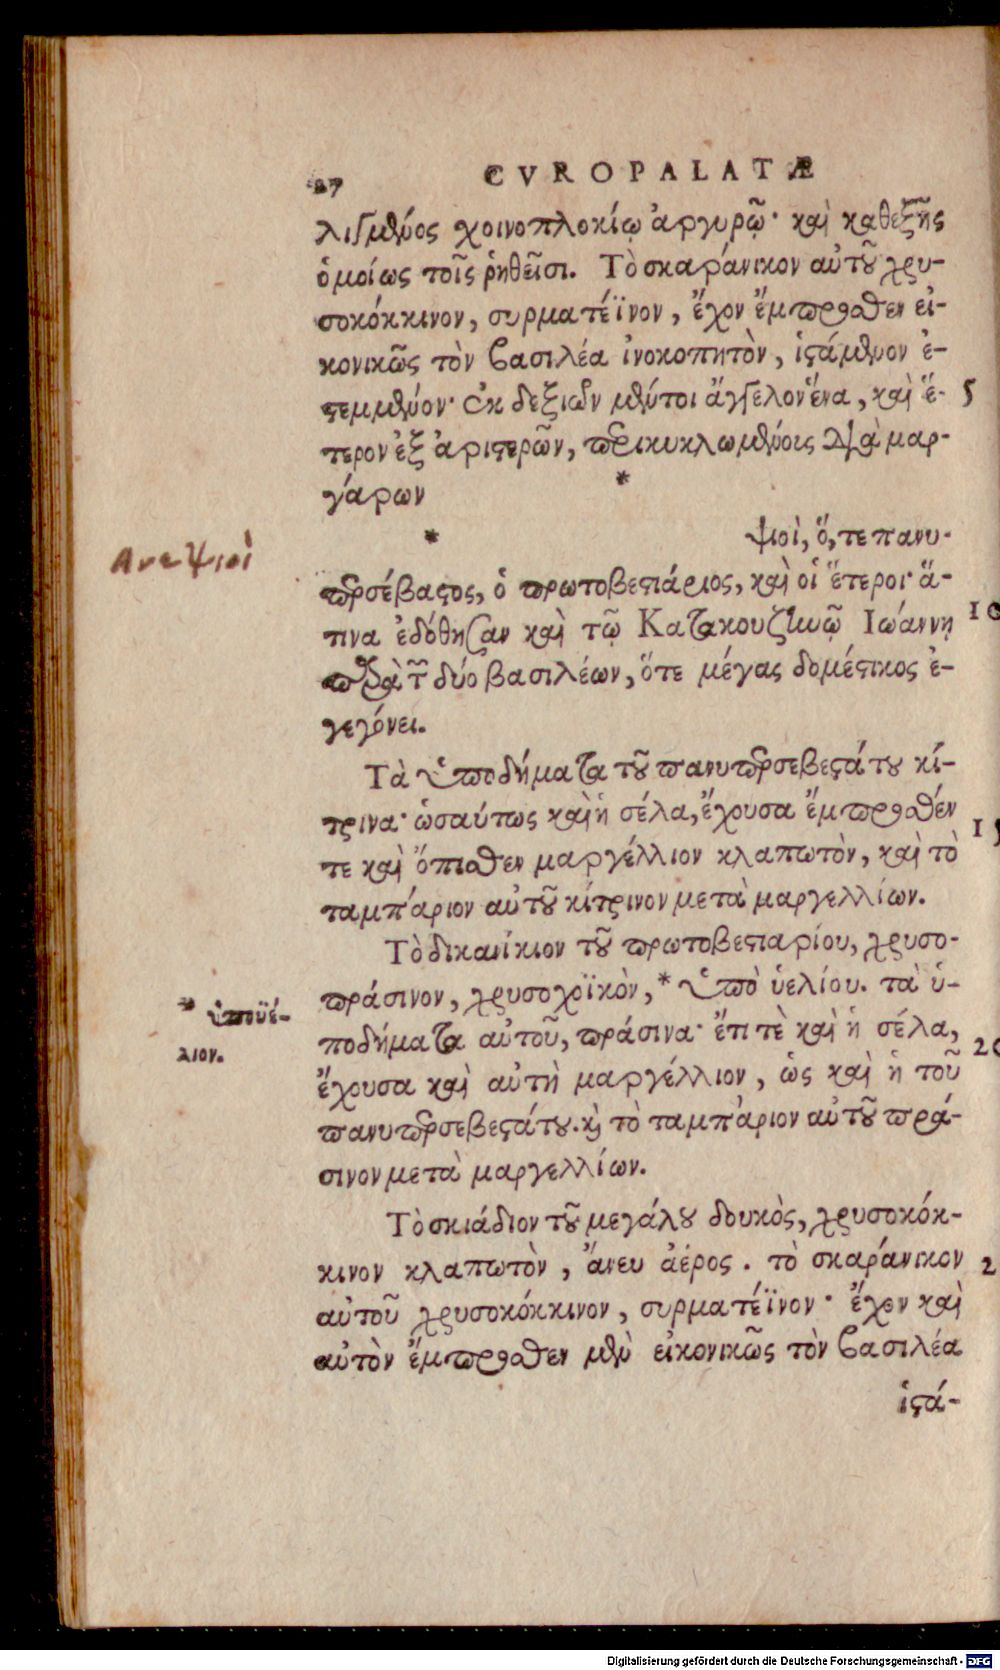 27 CVROPALATÆ
λιγμένος χοινοπλοκίῳ ἀργυρῷ· καὶ καθεξῆς
ὁμοίως τοῖς ῥηθεῖσι. Τὸ σκαράνικον αὐτοῦ χρυ-
σοκόκκινον, συρματέϊνον, ἔχον ἔμπροσθεν εἰ-
κονικῶς τὸν βασιλέα ἰνοκοπητὸν, ἱστάμενον ἐ-
στεμμένον· ἐκ δεξιῶν μέντοι ἄγγελον ἕνα, καὶ ἕ- 5
τερον ἐξ ἀριστερῶν, περικυκλωμένοις διὰ μαρ-
γάρων *
* ψιοὶ, ὅ, τε πανυ-
Ανεψιοὶ
περσέβαστος, ὁ πρωτοβεστιάριος, καὶ οἱ ἕτεροι· ἅ-
τινα ἐδόθησαν καὶ τῷ Κατακουζηνῷ Ἰωάννῃ 10
παρὰ τῶν δύο βασιλέων, ὅτε μέγας δομέστικος ἐ-
γεγόνει.
Τὰ ὑποδήματα τοῦ πανυπερσεβεστάτου κί-
τρινα· ὡσαύτως καὶ ἡ σέλα, ἔχουσα ἔμπροσθέν 15
τε καὶ ὄπισθεν μαργέλλιον κλαπωτὸν, καὶ τὸ
ταμπάριον αὐτοῦ κίτρινον μετὰ μαργελλίων.
Τὸ δικανίκιον τοῦ πρωτοβεστιαρίου, χρυσο-
πράσινον, χρυσοχοϊκὸν, * ὑπὸ ὑελίου. τὰ ὑ-
* ὑποϋέ-
λιον.
ποδήματα αὐτοῦ, πράσινα· ἔτι τὲ καὶ ἡ σέλα, 20
ἔχουσα καὶ αὐτὴ μαργέλλιον, ὡς καὶ ἡ τοῦ
πανυπερσεβεστάτου. καὶ τὸ ταμπάριον αὐτοῦ πρά-
σινον μετὰ μαργελλίων.
Τὸ σκιάδιον τοῦ μεγάλου δουκὸς, χρυσοκόκ-
κινον κλαπωτὸν, ἄνευ ἀέρος. τὸ σκαράνικον 2
αὐτοῦ χρυσοκόκκινον, συρματέϊνον· ἔχον καὶ
αὐτὸν ἔμπροσθεν μὲν εἰκονικῶς τὸν βασιλέα
ἱστά-
Digitalisierung gefördert durch die Deutsche Forschungsgemeinschaft - DFG